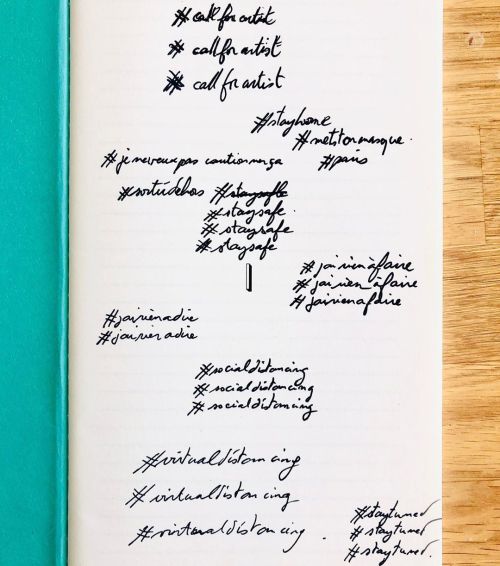 #callforartist
# callforartist
# callforartist
#stayhome
#metstonmasque.
#jeneveuxpas cautionnerça
#paris
#sortirdehors #staysafe
#staysafe.
#staysafe
#staysafe
#jairienàfaire
#jairienàfaire
#jairienafaire
#jairienadire
#jairienadire
#socialdistancing
#socialdistancing
#socialdistancing
#virtualdistancing
#virtualdistancing
#virtualdistancing.
#staytuned
#staytuned
#staytuned.